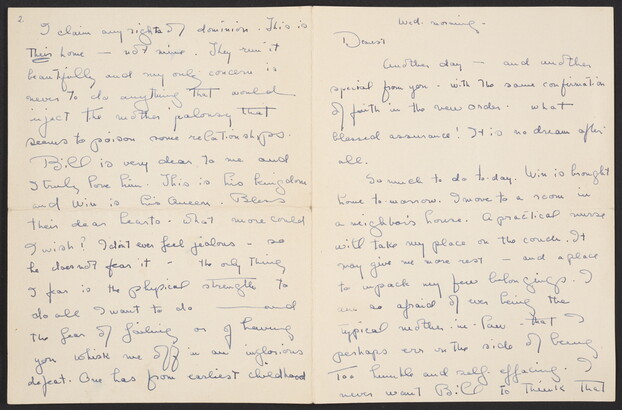 Wed. morning -
Dearest
Another day — and another
special from you - with the same confirmation
of faith in the new order. What
blessed assurance! It is no dream after
all.
So much to do to-day. Win is brought
home to-morrow. I move to a room in
a neighbor's house. A practical nurse
will take my place on the couch. It
may give me more rest — and a place
to unpack my few belongings. I
am so afraid of ever being the
typical mother-in-law - that I
perhaps err on the side of being
too humble and self-effacing. I
never want Bill to think that
2.
I claim any rights of dominion. This is
Their home — not mine. They run it
beautifully and my only concern is
never to do anything that would
inject the mother jealousy that
seems to poison some relationships.
Bill is very dear to me and
I truly love him. This is his kingdom
and Win is his Queen. Bless
their dear hearts - what more could
I wish! I didn't ever feel jealous - so
he does not fear it - the only thing
I fear is the physical strength to
do all I want to do — and
the fear of failing or of having
you whisk me off in an inglorious
defeat. One has from earliest childhood